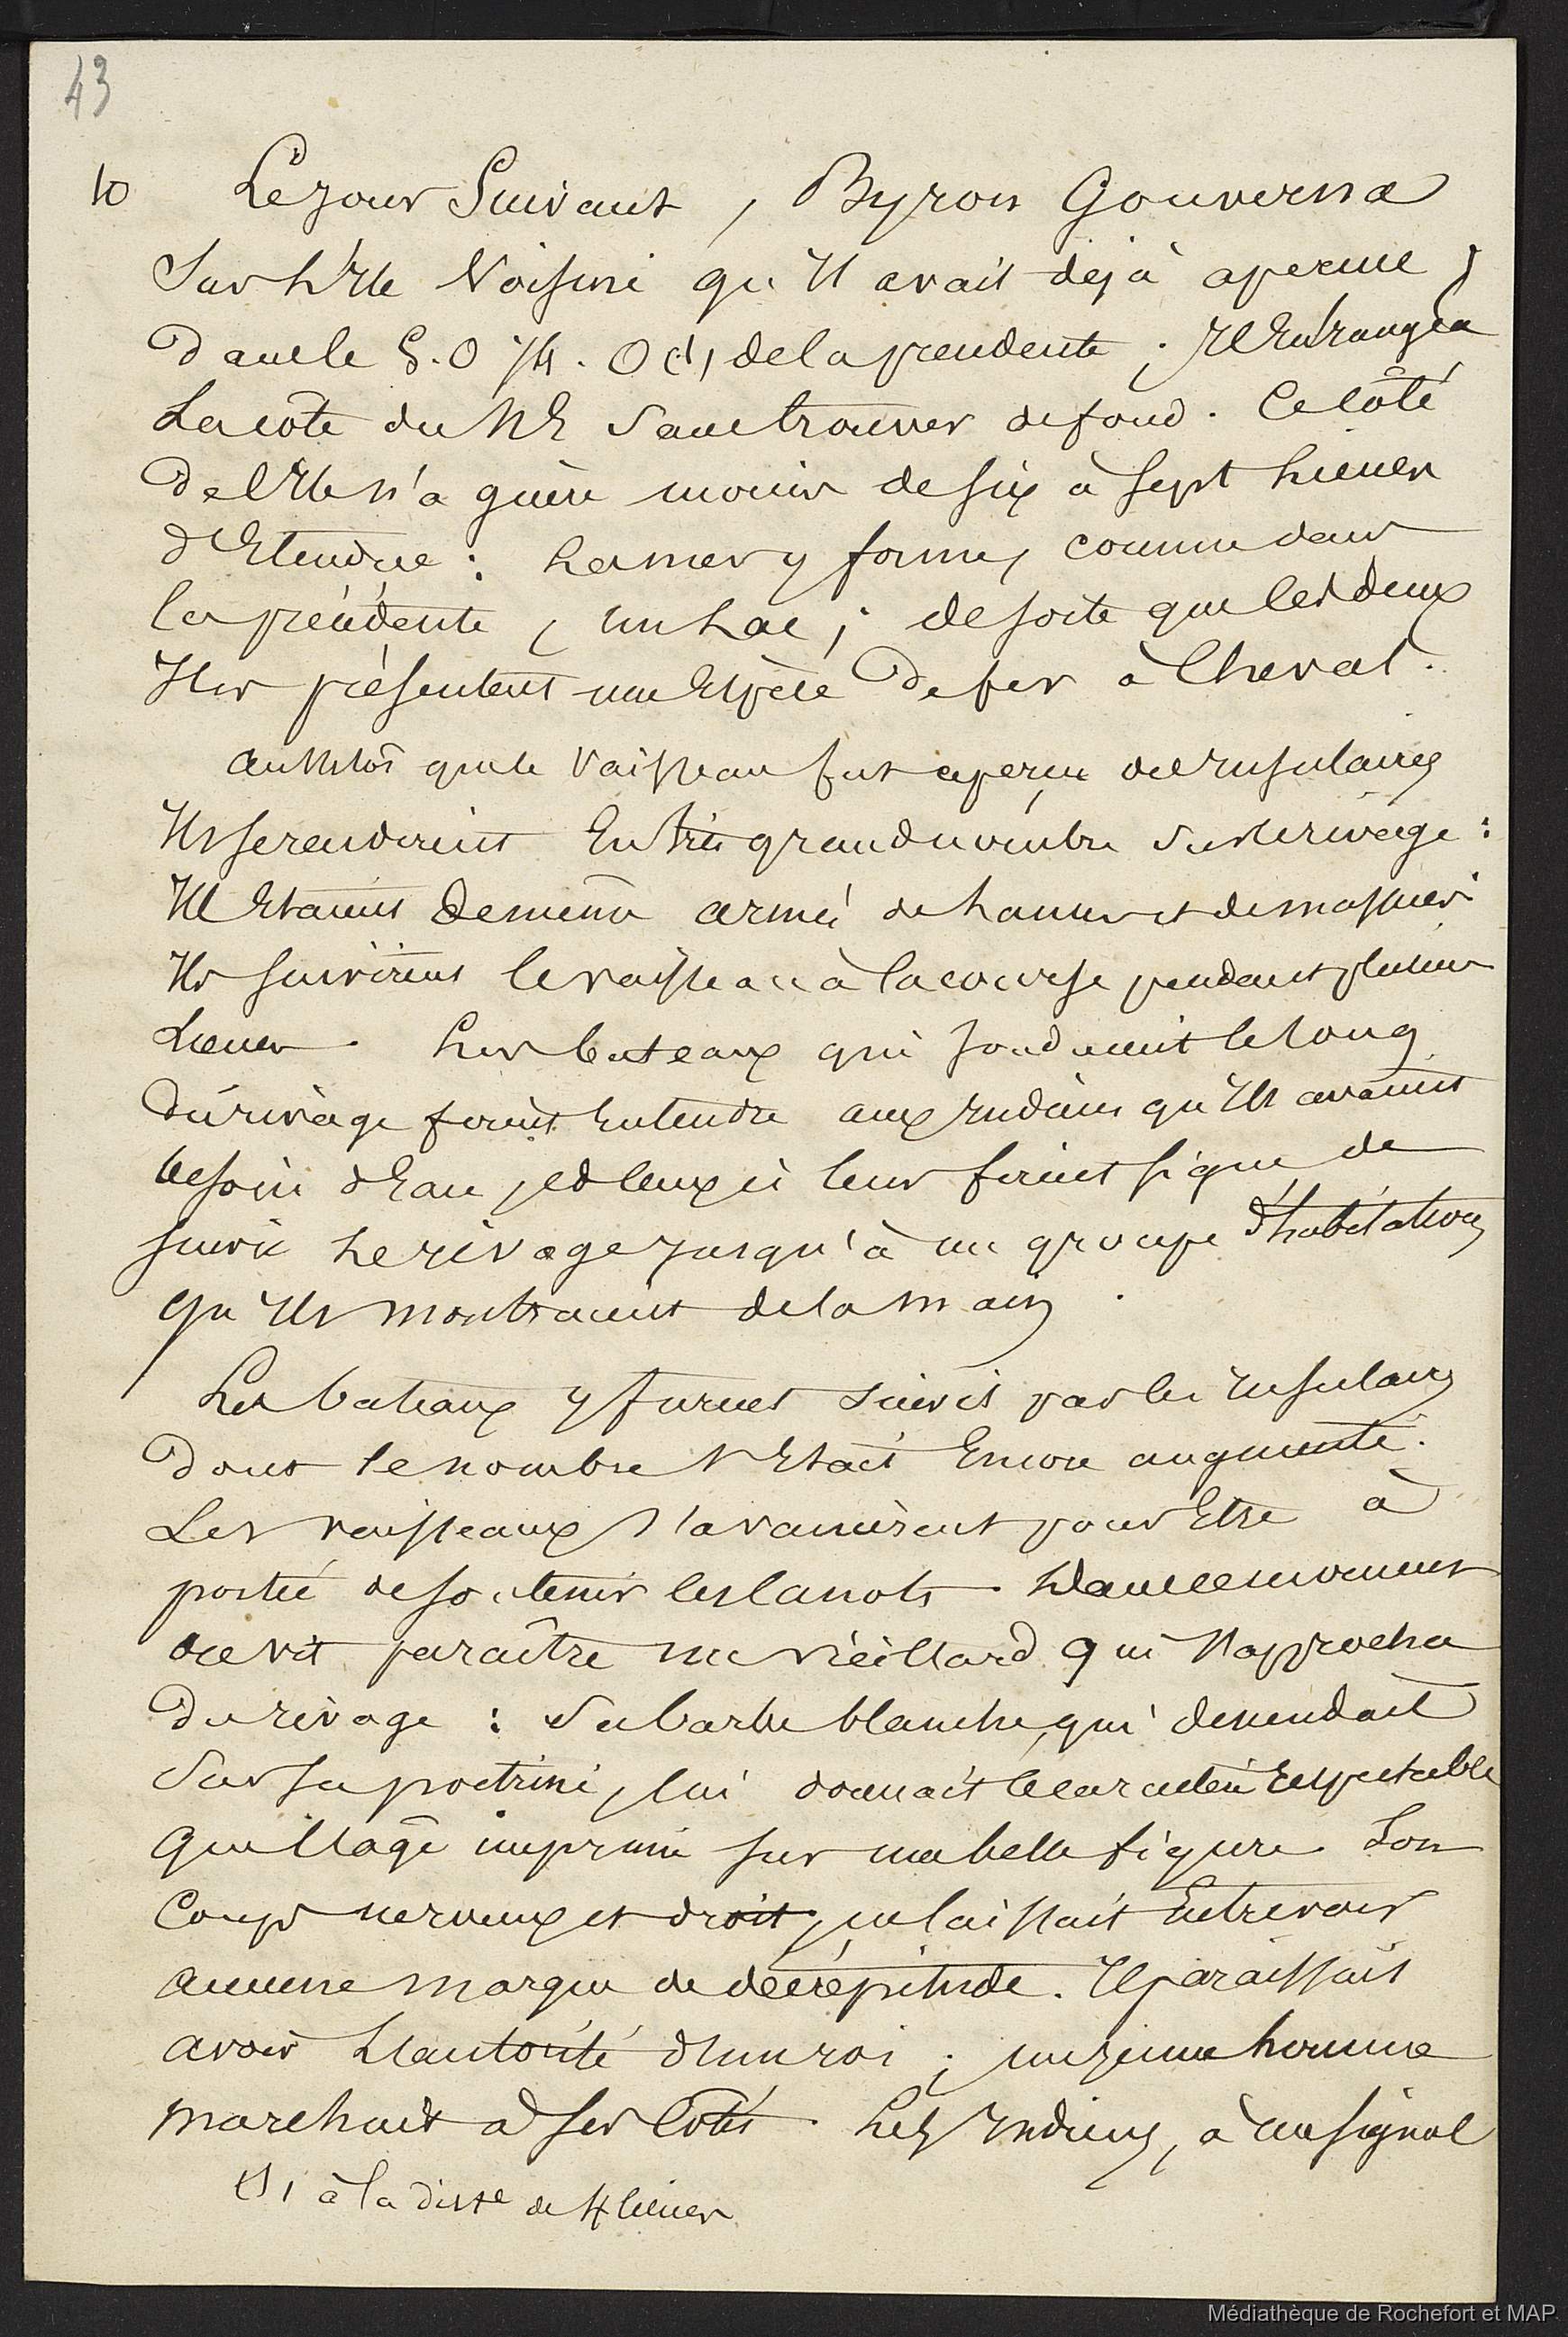 43
10 Le jour Suivant, Byron Gouverna
Sur l'Ile Voisine qu'Il avait déjà apercue
Dans le S.O 1/4 . O (1) de la précédente ; Il En rangea
La côte du NE Sans trouver de fond . Ce côté
De l'Ile n'a guère moins de six à sept Lieues
d'Etendue : La mer y forme, comme dans
la précédente, un Lac ; de sorte que les deux
Iles présentent une Espèce De fer à Cheval .
Aussitôt que le Vaisseau fut aperçu des Insulaires
Ils se rendirent En très grand nombre Sur le rivage :
Ils Etaient De même armés de Lances et de massues
Ils suivirent le vaisseau à la course pendant plusieurs
Lieues . Les bateaux qui sondaient le long
Du rivage firent Entendre aux Indiens qu'Ils avaient
besoin d'Eau , et ceux ci leur firent signe de
suivre Le rivage jusqu'à un groupe d'habitations
qu'Ils montraient de la main .
Les bateaux y furent suivis par les Insulaires
Dont le nombre s'Etait Encore augmenté .
Les vaisseaux s'avancèrent pour Etre à
portée de soutenir les Canots . Dans ce moment
on vit paraître un vieillard qui s'approcha
Du rivage : Sa barbe blanche, qui descendait
Sur sa poitrine, lui donnait le caractère respectable
Que l'âge imprime sur une belle figure . Son
Corps nerveux et droit, ne laissait Entrevoir
aucune marque de décrépitude . Il paraissait
avoir L'autorité d'un roi ; un jeune homme
marchait à ses Côtés . Les Indiens, à un signal
(1) à la distce de 4 lieues
Médiathèque de Rochefort et MAP